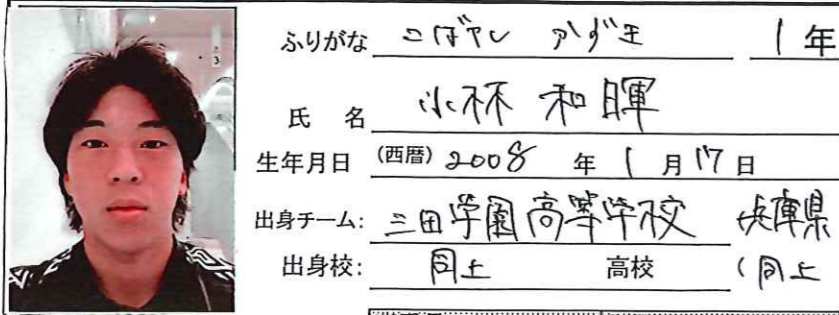 ふりがな こばやし かずき 1年
氏名 小林 和暉
生年月日 (西暦) 2008 年 1 月 17 日
出身チーム: 三田学園高等学校 兵庫県
出身校: 同上 高校 (同上